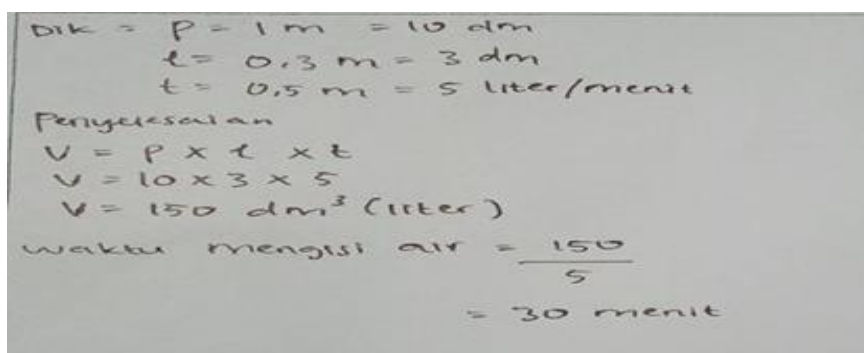 Dik = P = 1 m = 10 dm
l = 0.3 m = 3 dm
t = 0,5 m = 5 liter/menit
Penyelesaian
V = P x l x t
V = 10 x 3 x 5
V = 150 dm³ (liter)
waktu mengisi air = 150
5
= 30 menit